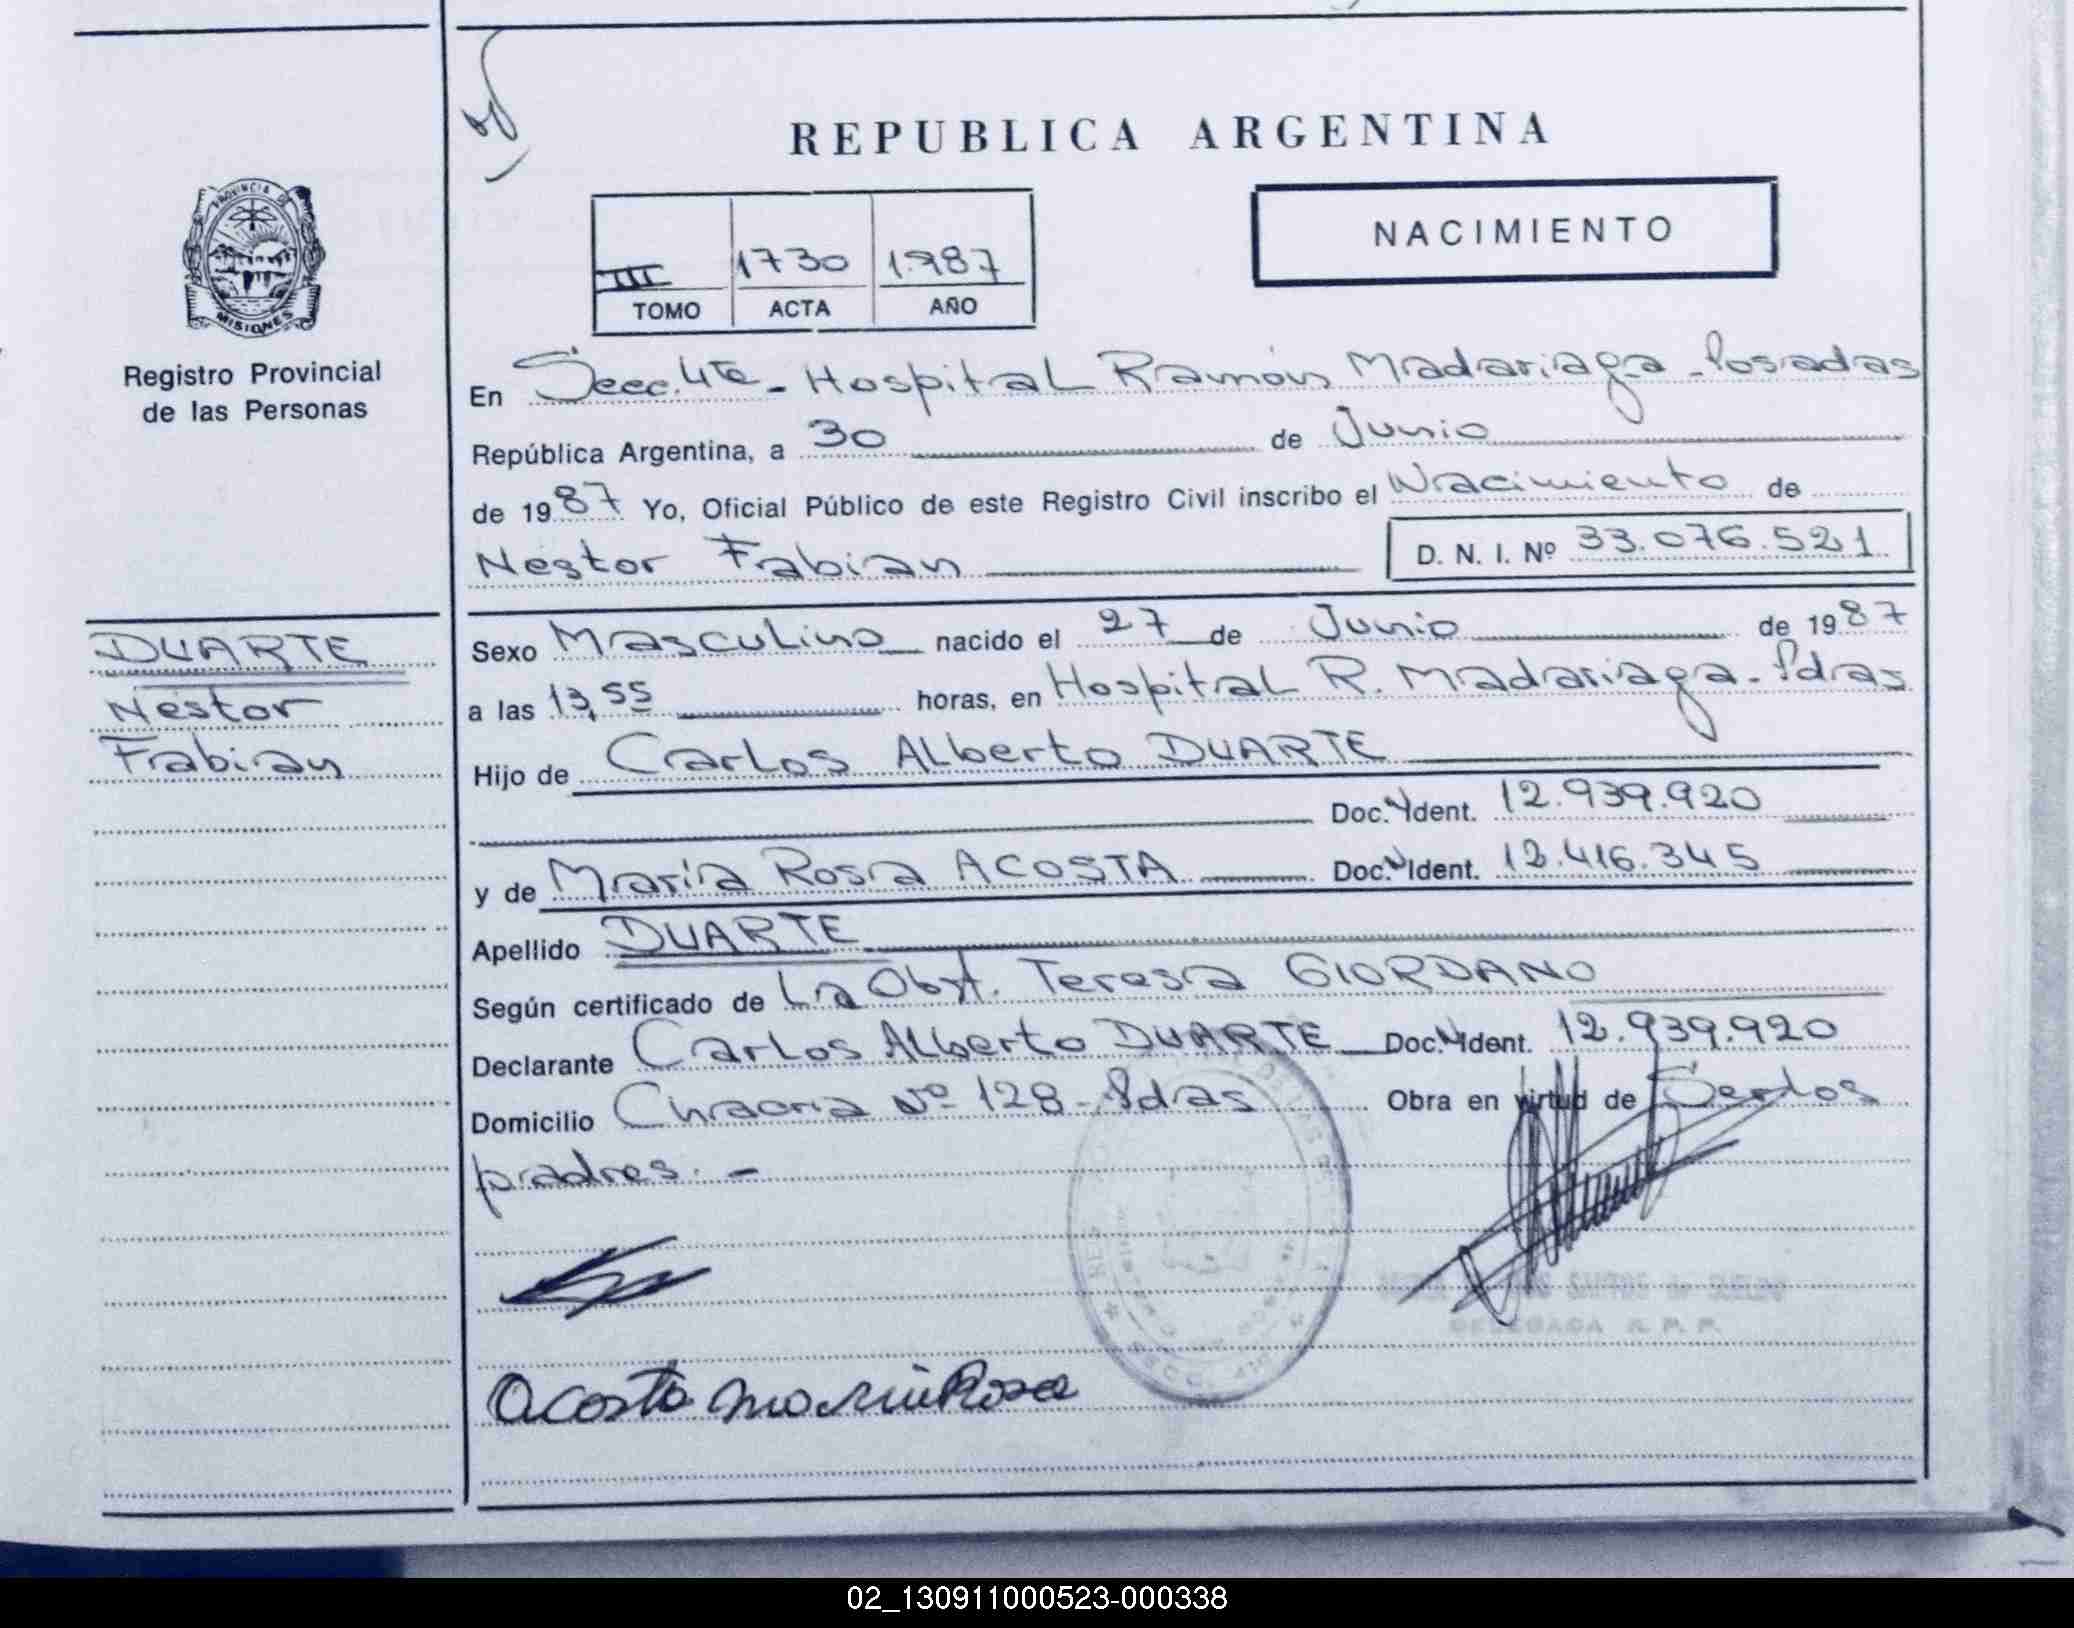 REPUBLICA ARGENTINA
NACIMIENTO
III 1730 1.987
TOMO ACTA AÑO
PROVINCIA DE
MISIONES
Registro Provincial
de las Personas
En Secc. 4ta - Hospital Ramón Madariaga - Posadas
República Argentina, a 30 de Junio
de 1987 Yo, Oficial Público de este Registro Civil inscribo el Nacimiento de
Nestor Fabian D. N. I. Nº 33.076.521
DUARTE
Nestor
Fabian
Sexo Masculino nacido el 27 de Junio de 1987
a las 13,55 horas, en Hospital R. Madariaga - Pdas
Hijo de Carlos Alberto DUARTE
Doc. N Ident. 12.939.920
y de María Rosa ACOSTA Doc. N Ident. 12.416.345
Apellido DUARTE
Según certificado de La Obst. Teresa GIORDANO
Declarante Carlos Alberto DUARTE Doc. N Ident. 12.939.920
Domicilio Chacra Nº 128 - Pdas Obra en virtud de Ser los
padres. -
DELEGADA R. P. P.
Acosta Maria Rosa
02_130911000523-000338